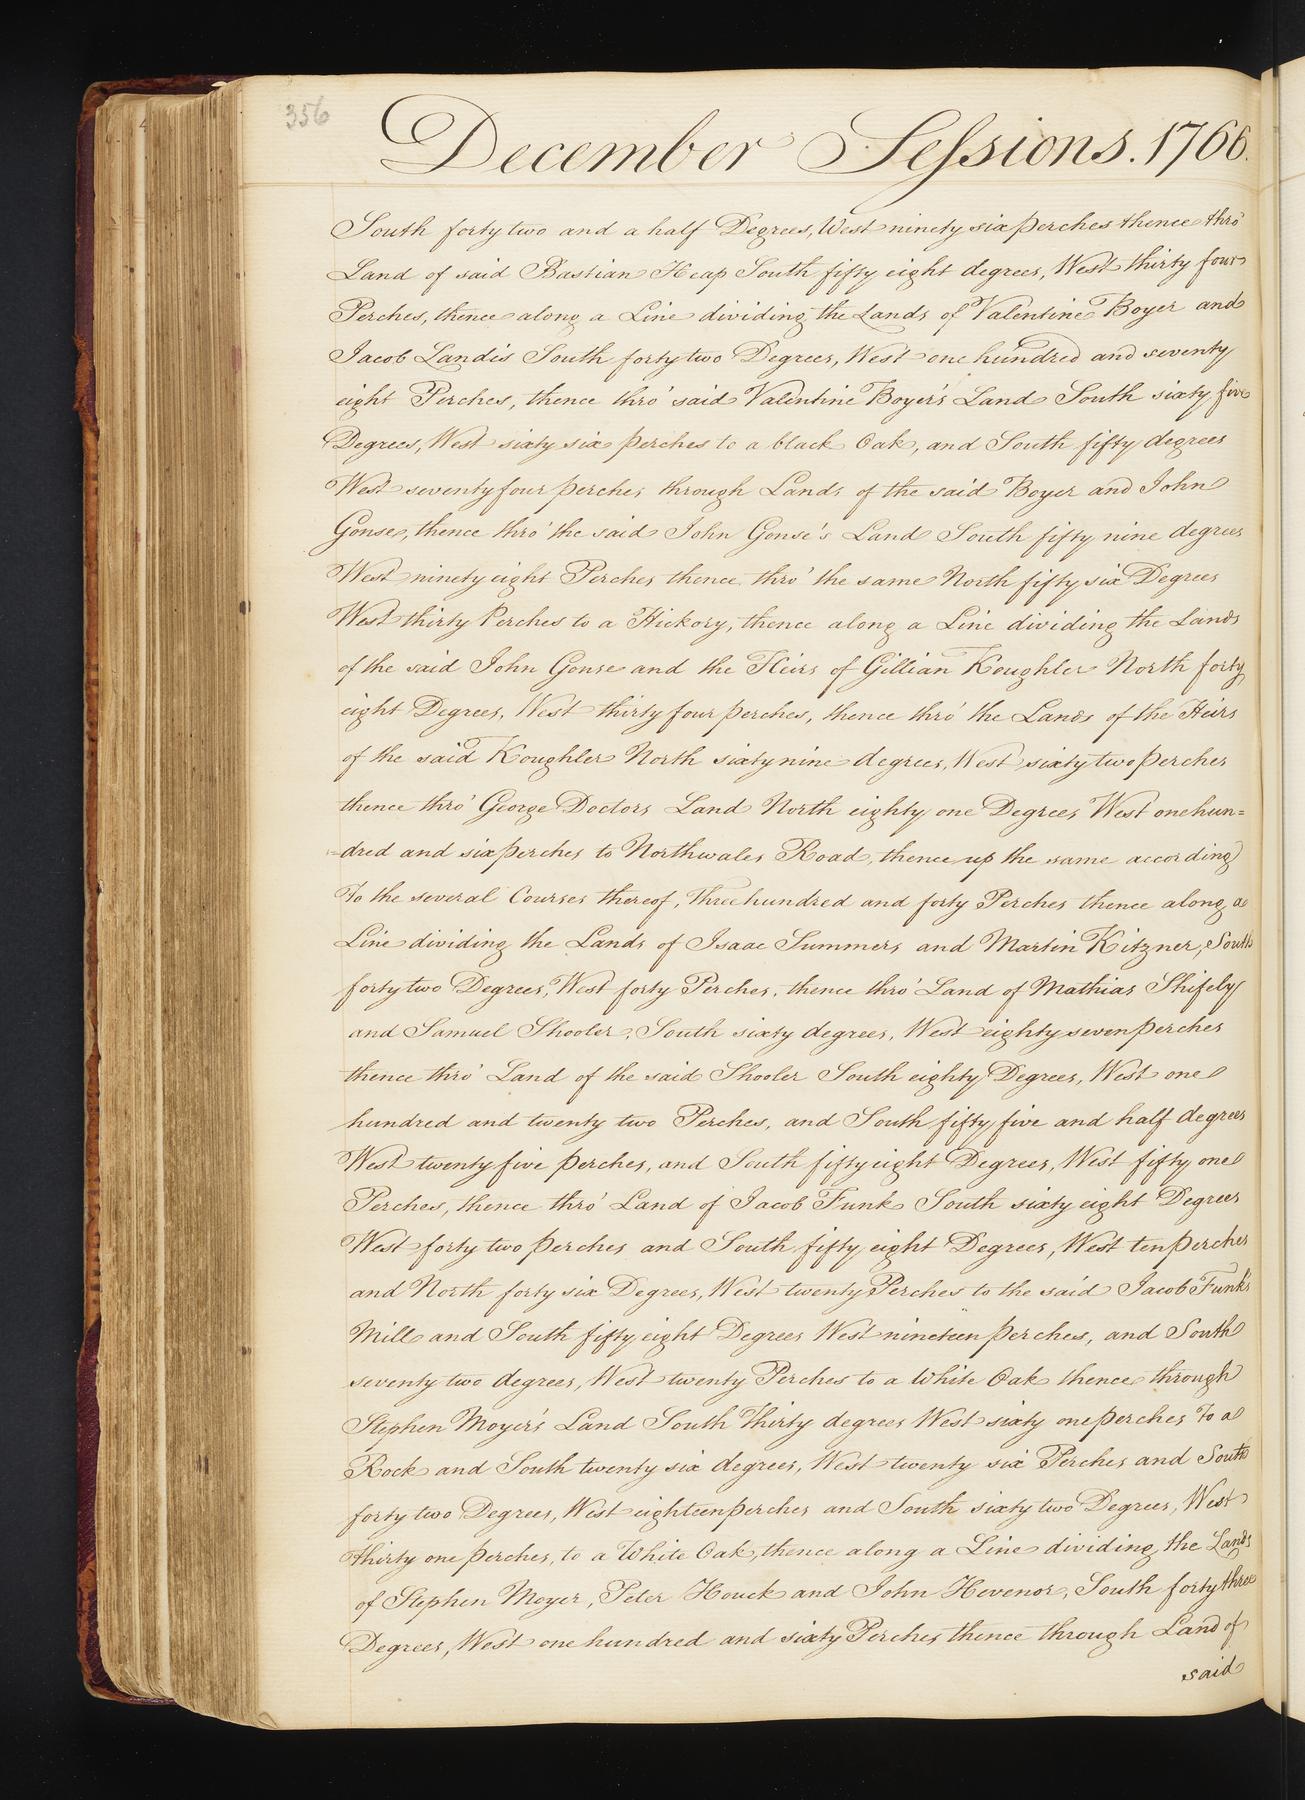 356
December Sessions. 1766.
South forty two and a half Degrees, West ninety six perches thence thro'
Land of said Bastian Heap South fifty eight degrees, West thirty four
Perches, thence along a Line dividing the Lands of Valentine Boyer and
Jacob Landis South forty two Degrees, West one hundred and seventy
eight Perches, thence thro' said Valentine Boyer's Land South sixty five
Degrees, West sixty six perches to a black Oak, and South fifty degrees
West seventy four perches through Lands of the said Boyer and John
Gonse, thence thro' the said John Gonse's Land South fifty nine degrees
West ninety eight Perches thence thro' the same North fifty six Degrees
West thirty Perches to a Hickory, thence along a Line dividing the Lands
of the said John Gonse and the Heirs of Gillian Koughler North forty
eight Degrees, West thirty four perches, thence thro' the Lands of the Heirs
of the said Koughler North sixty nine degrees, West sixty two perches
thence thro' George Doctors Land North eighty one Degrees West one hun=
=dred and six perches to Northwales Road, thence up the same according
To the several Courses thereof, three hundred and forty Perches thence along a
Line dividing the Lands of Isaac Summers and Martin Kitzner, South
forty two Degrees, West forty Perches, thence thro' Land of Mathias Shifely
and Samuel Shooler, South sixty degrees, West eighty seven perches
thence thro' Land of the said Shooler South eighty Degrees, West one
hundred and twenty two Perches, and South fifty five and half degrees
West twenty five perches, and South fifty eight Degrees, West fifty one
Perches, thence thro' Land of Jacob Funk South sixty eight Degrees
West forty two perches and South fifty eight Degrees, West ten perches
and North forty six Degrees, West twenty Perches to the said Jacob Funk's
Mill and South fifty eight Degrees West nineteen perches, and South
seventy two degrees, West twenty Perches to a White Oak thence through
Stephen Moyer's Land South Thirty degrees West sixty one perches To a
Rock and South twenty six degrees, West twenty six Perches and South
forty two Degrees, West eighteen perches and South sixty two Degrees, West
thirty one perches, to a White Oak, thence along a Line dividing the Lands
of Stephen Moyer, Peter Houck and John Hevenor, South forty three
Degrees, West one hundred and sixty Perches thence through Land of
said